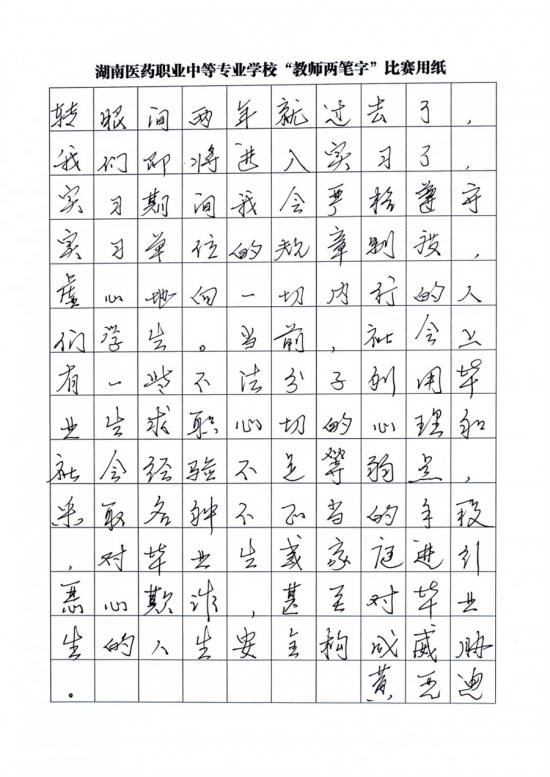 湖南医药职业中等专业学校“教师两笔字”比赛用纸
转眼间两年就过去了，
我们即将进入实习了，
实习期间我会严格遵守
实习单位的规章制度，
虚心地向一切内行的人
们学生。当前，社会上
有一些不法分子利用毕
业生求职心切的心理和
社会经验不足等弱点，
采取各种不正当的手段
，对毕业生或家庭进行
恶心欺诈，甚至对毕业
生的人生安全构成威胁
。黄